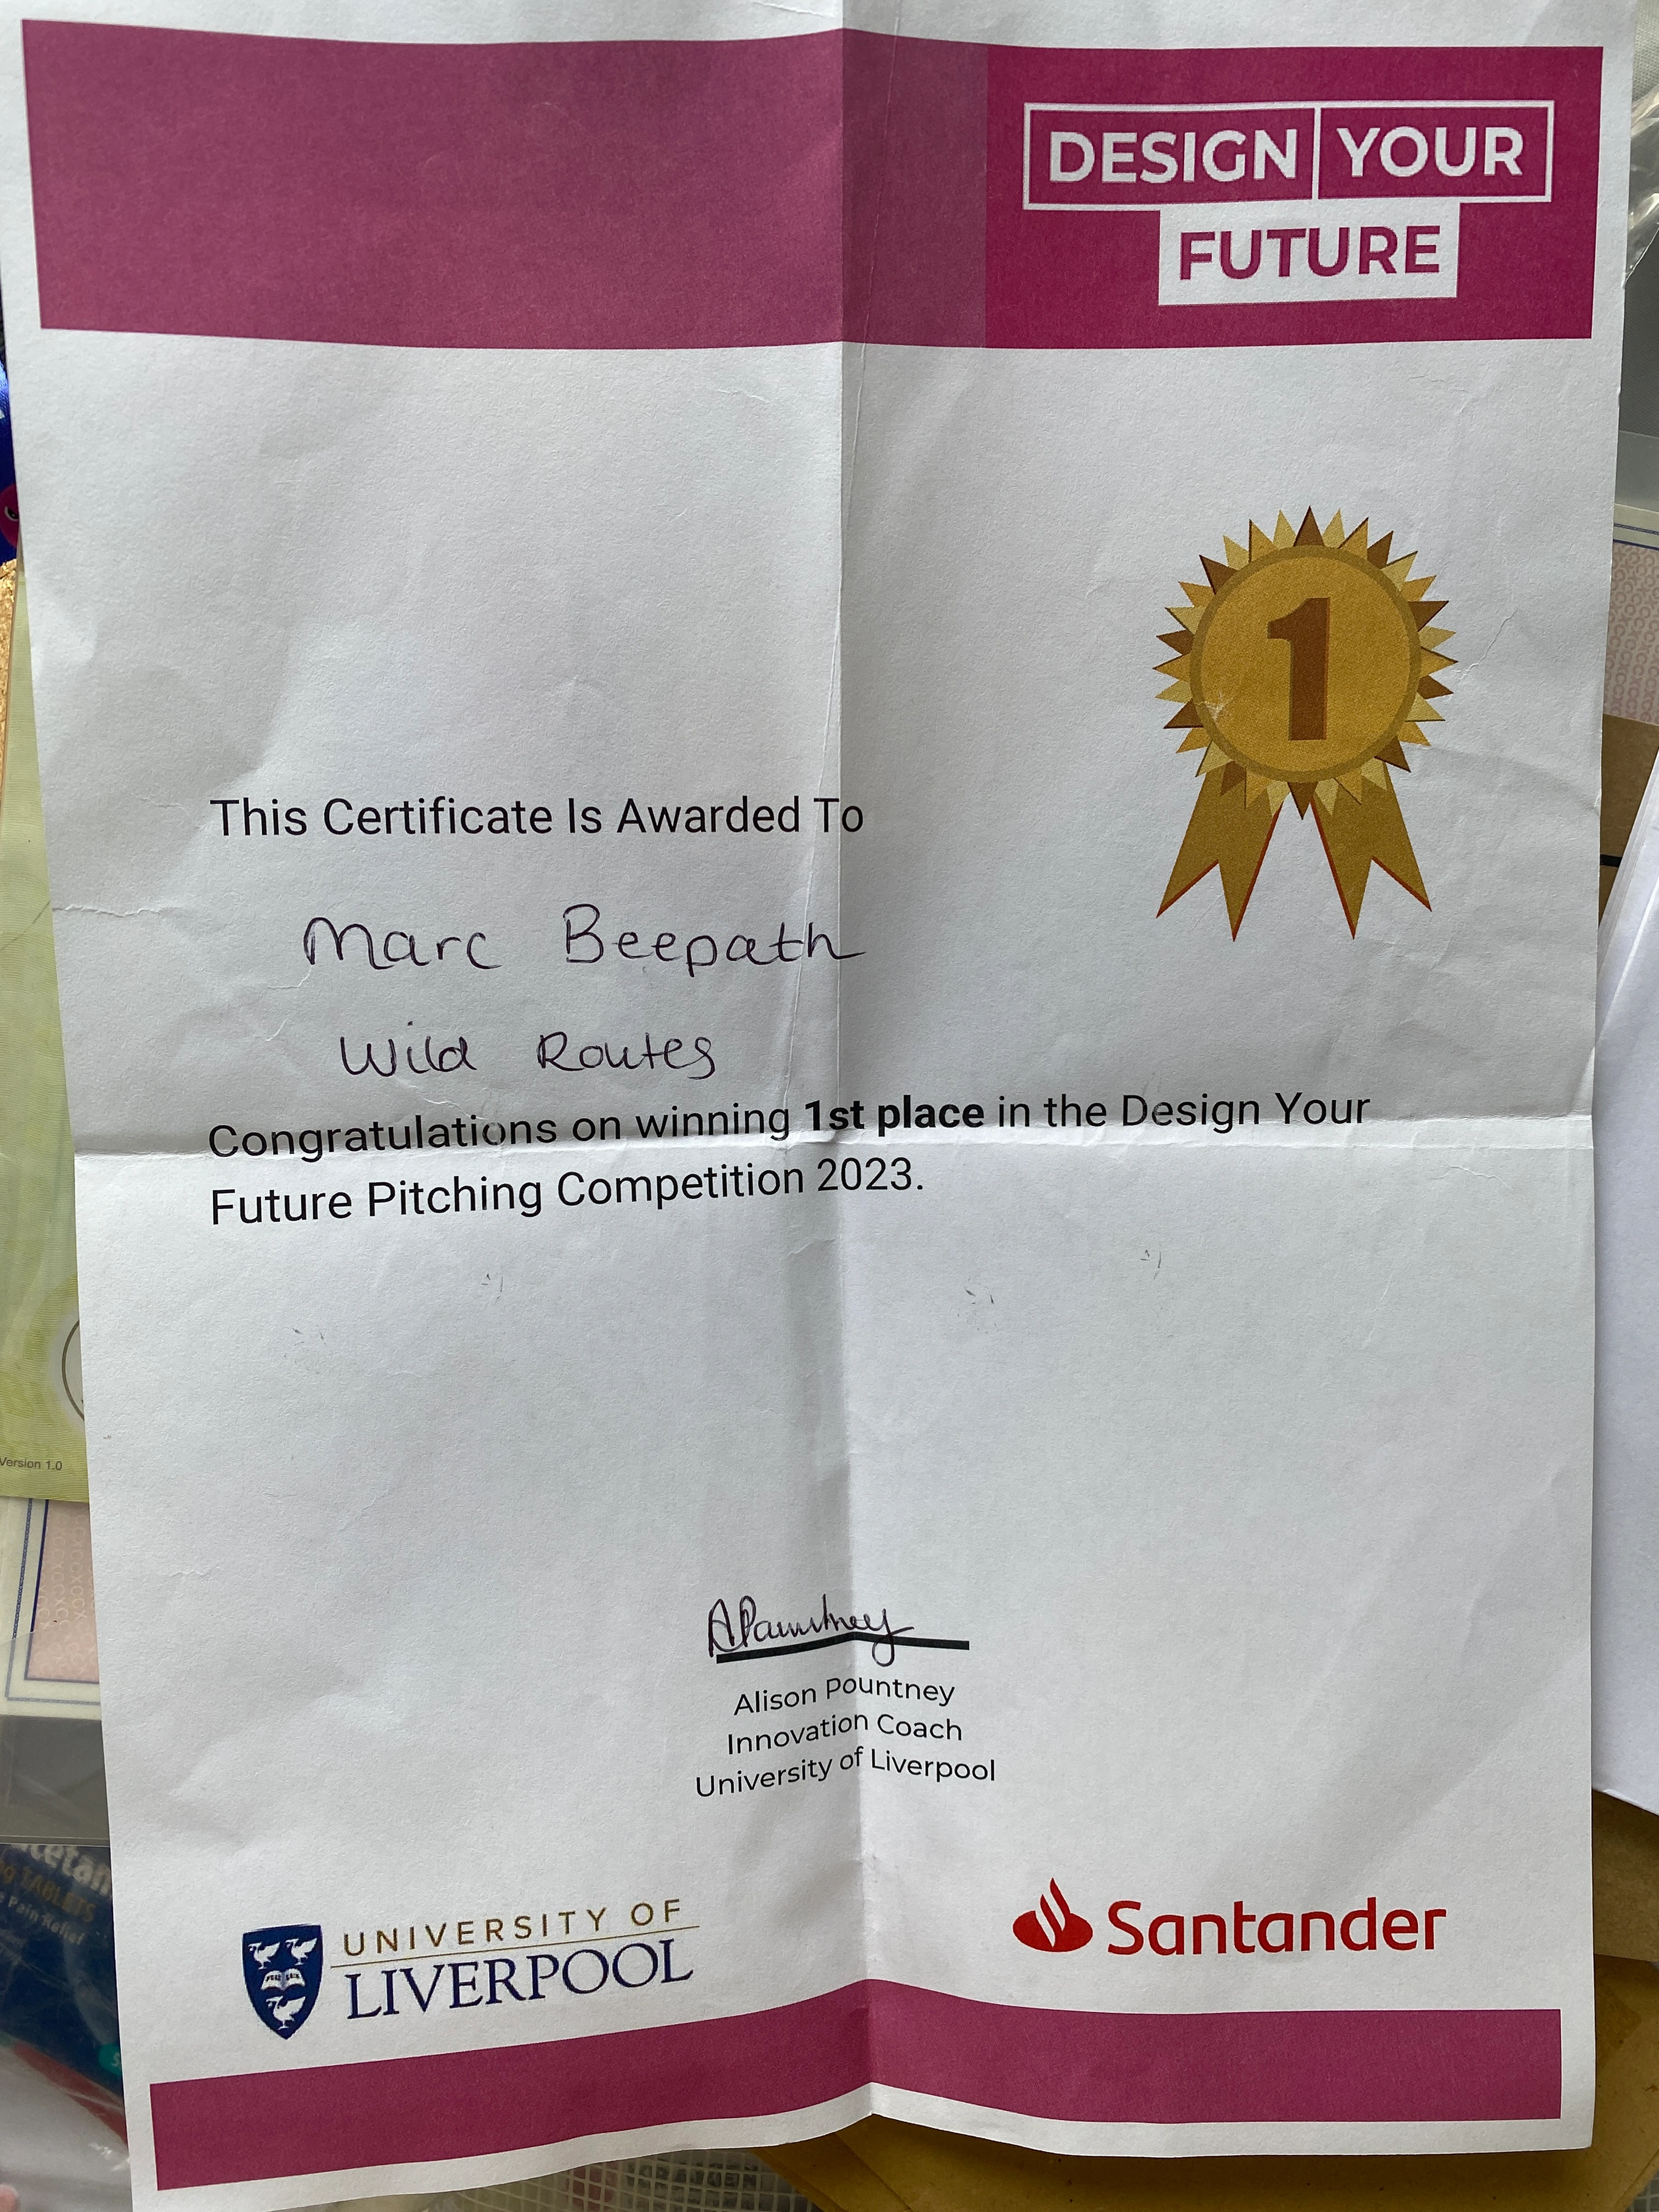 DESIGN YOUR
FUTURE
1
This Certificate Is Awarded To
Marc Beepath
Wild Routes
Congratulations on winning 1st place in the Design Your
Future Pitching Competition 2023.
APountney
Alison Pountney
Innovation Coach
University of Liverpool
UNIVERSITY OF
LIVERPOOL
Santander
Version 1.0
TABLETS
Pain Relief